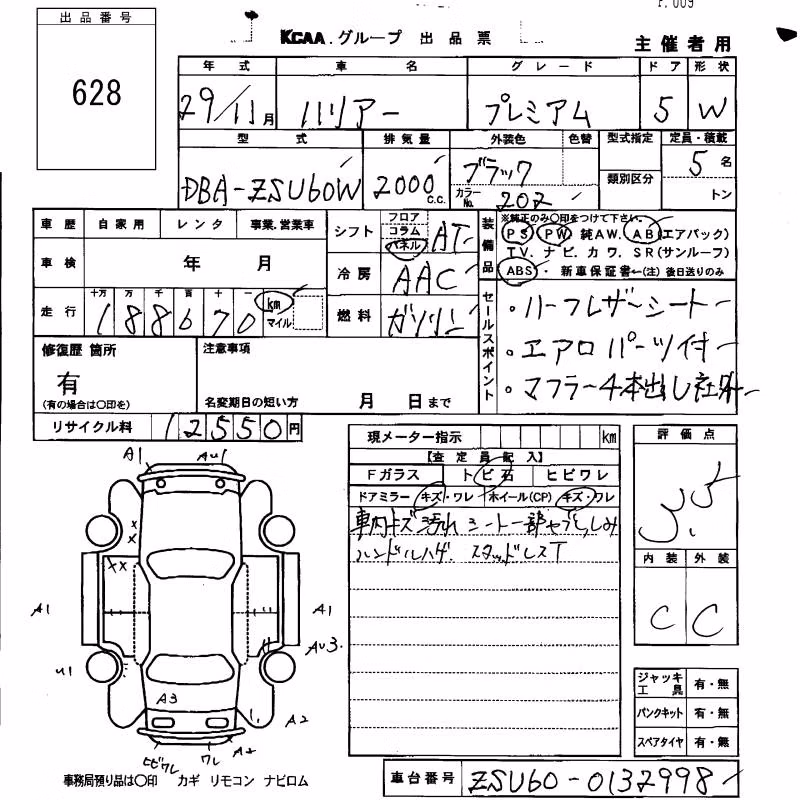 P.009
出品番号
628
KCAA.グループ 出品票
主催者用
年式 車名 グレード ドア 形状
29/11月 ハリアー プレミアム 5 W
型式 排気量 外装色 色替 型式指定 定員・積載
DBA-ZSU60W 2000c.c. ブラック 5名
カラーNo. 202 類別区分 トン
車歴 自家用 レンタ 事業.営業車
シフト フロア コラム パネル AT
装備品 ※純正のみ○印をつけて下さい。
PS PW 純AW. AB(エアバック)
TV. ナビ. カワ. SR(サンルーフ)
ABS・ 新車保証書←(注)後日送りのみ
車検 年 月
冷房 AAC
走行 十万 万 千 百 十 一
188670 km マイル
燃料 ガソリン
セールスポイント
・ハーフレザーシート
・エアロパーツ付
・マフラー4本出し社外
修復歴 箇所
有
(有の場合は○印を)
注意事項
名変期日の短い方 月 日まで
リサイクル料 12550円
現メーター指示 km
【査定員記入】
Fガラス トビ石 ヒビワレ
ドアミラー キズ・ワレ ホイール(CP) キズ・ワレ
車内キズ汚れ シート一部ヤブレ,しみ
ハンドルハゲ. スタッドレスT
評価点
3.5
内装 外装
C C
A1 AU1
X X
XX
A1 A1
AU3.
U1
A3
A2
ヒビワレ ワレ A2
ジャッキ工具 有・無
パンクキット 有・無
スペアタイヤ 有・無
事務局預り品は○印 カギ リモコン ナビロム
車台番号 ZSU60-0132998